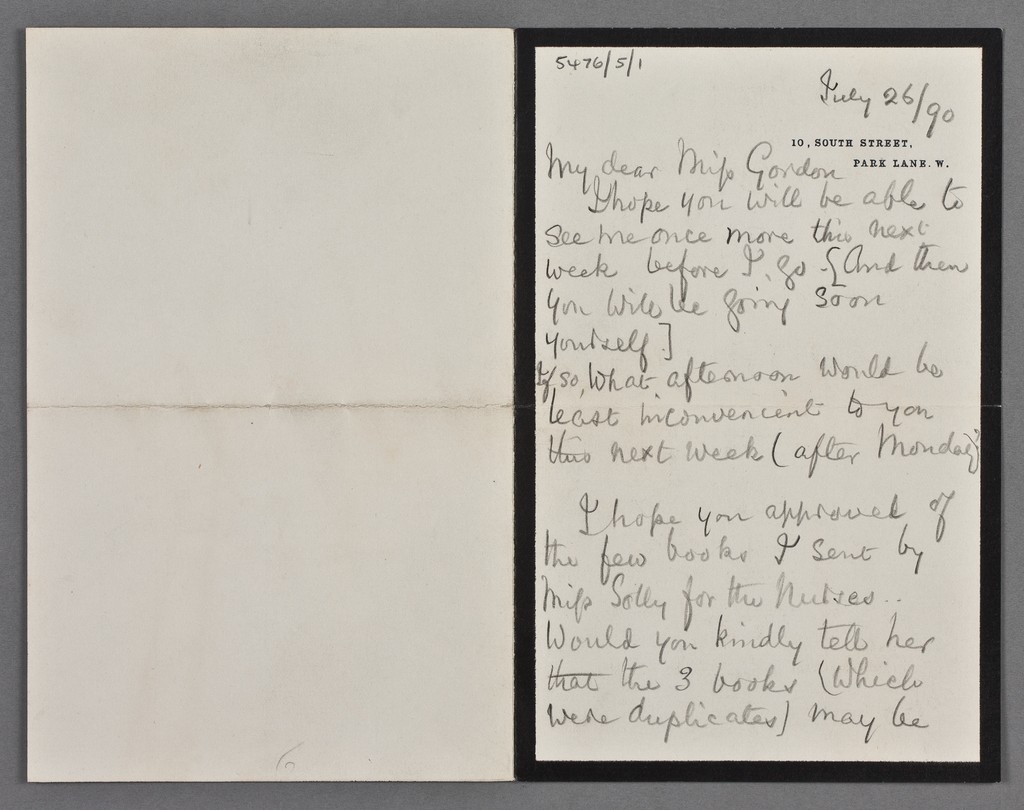 5476/5/1
July 26/90
10, SOUTH STREET,
PARK LANE. W.
My dear Miss Gordon
I hope you will be able to
see me once more this next
week before I go - [And then
you will be going soon
yourself]
If so, what afternoon would be
least inconvenient to you
this next week (after Monday)
I hope you approved of
the few books I sent by
Miss Solly for the Nurses..
Would you kindly tell her
that the 3 books (which
were duplicates) may be
6